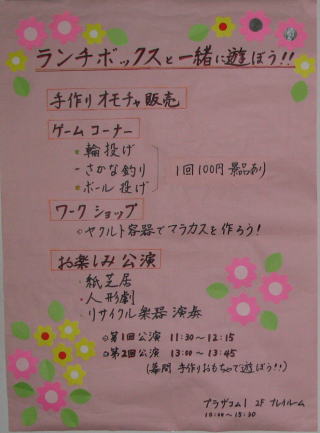 ランチボックスと一緒に遊ぼう!!
手作りオモチャ販売
ゲームコーナー
・輪投げ
・さかな釣り
・ボール投げ
1回100円 景品あり
ワークショップ
○ヤクルト容器でマラカスを作ろう!
お楽しみ公演
・紙芝居
・人形劇
・リサイクル楽器演奏
○第1回公演 11:30～12:15
○第2回公演 13:00～13:45
(幕間 手作りおもちゃで遊ぼう!!)
プラザコム1 2F プレイルーム
10:00～15:30